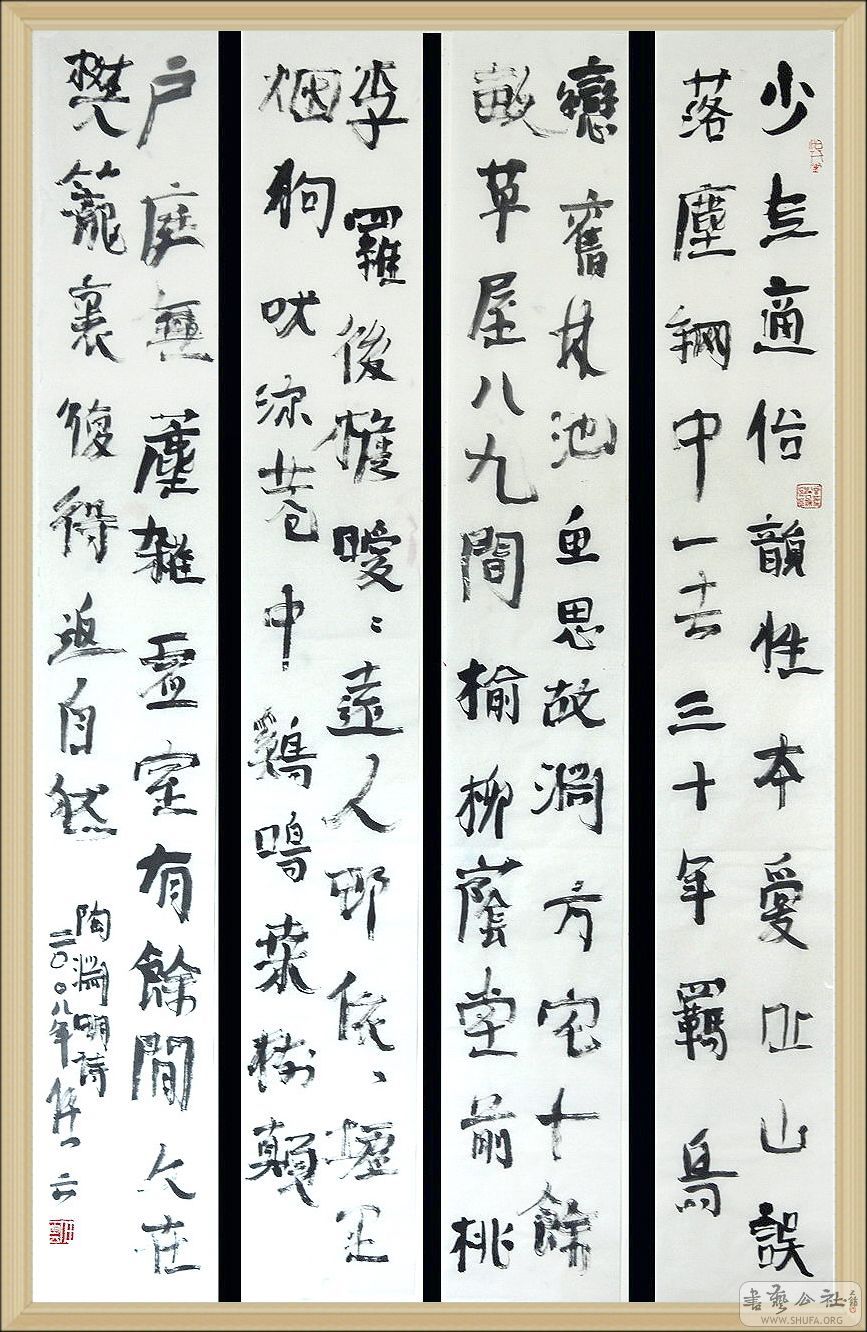 少无適俗韻性本愛丘山誤
落塵網中一去三十年羈鳥
戀舊林池魚思故淵方宅十餘
畝草屋八九間榆柳蔭堂前桃
李羅後檐曖〻遠人邨依〻墟里
烟狗吠深巷中鷄鳴桑樹顛
户庭無塵雜虛室有餘間久在
樊籠裏復得返自然
陶淵明詩
二〇〇八年
書藝公社
WWW.SHUFA.ORG